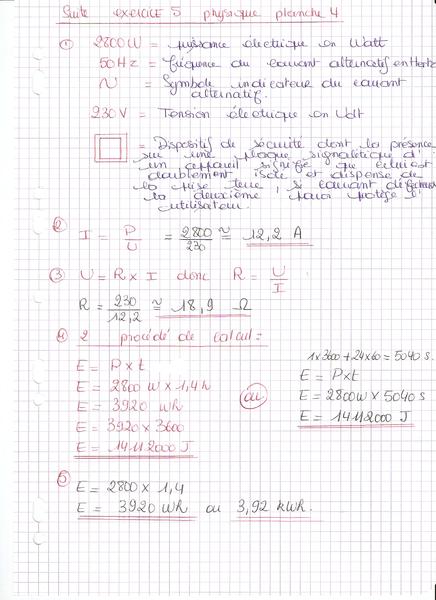 Suite exercice 5 physique planche 4
① 2800W = puissance électrique en Watt
50Hz = fréquence du courant alternatif en Hertz
~ = Symbole indicateur du courant
alternatif.
230V = Tension électrique en Volt
= Dispositif de sécurité dont la présence
sur une plaque signalétique d'
un appareil signifie que celui ci
doublement isolé et dispense de
la prise terre, si courant
la deuxième paroi protège l'
utilisateur.
② I = P/U = 2800/230 ≅ 12,2 A
③ U = R x I donc R = U/I
R = 230/12,2 ≅ 18,9 Ω
④ 2 procédé de calcul :
E = P x t
E = 2800 W x 1,4 h
E = 3920 Wh
E = 3920 x 3600
E = 14112000 J
ou
1 x 3600 + 24 x 60 = 5040 s.
E = P x t
E = 2800W x 5040 s
E = 14112000 J
⑤
E = 2800 x 1,4
E = 3920 Wh ou 3,92 kWh.